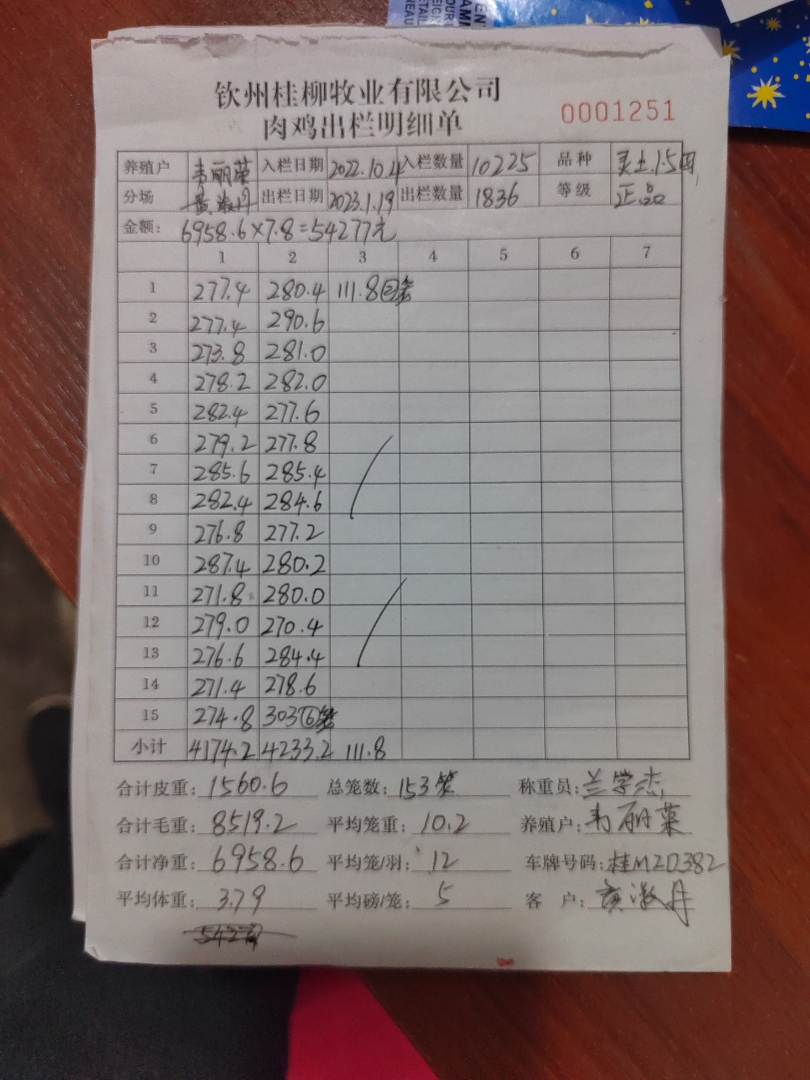 钦州桂柳牧业有限公司
肉鸡出栏明细单 0001251
养殖户 韦丽菜 入栏日期 2022.10.4 入栏数量 10225 品种 灵土15
分场 出栏日期 2023.1.19 出栏数量 1836 等级 正品
金额: 6958.6×7.8=54277元
1 2 3 4 5 6 7
1 277.4 280.4 111.8
2 277.4 290.6
3 273.8 281.0
4 278.2 282.0
5 282.4 277.6
6 279.2 277.8
7 285.6 285.4
8 282.4 284.6
9 276.8 277.2
10 287.4 280.2
11 271.8 280.0
12 279.0 270.4
13 276.6 284.4
14 271.4 278.6
15 274.8 303⑥笼
小计 4174.2 4233.2 111.8
合计皮重: 1560.6 总笼数: 153笼 称重员: 兰学杰
合计毛重: 8519.2 平均笼重: 10.2 养殖户: 韦丽菜
合计净重: 6958.6 平均笼/羽: 12 车牌号码: 桂MZD382
平均体重: 3.79 平均磅/笼: 5 客户: 黄